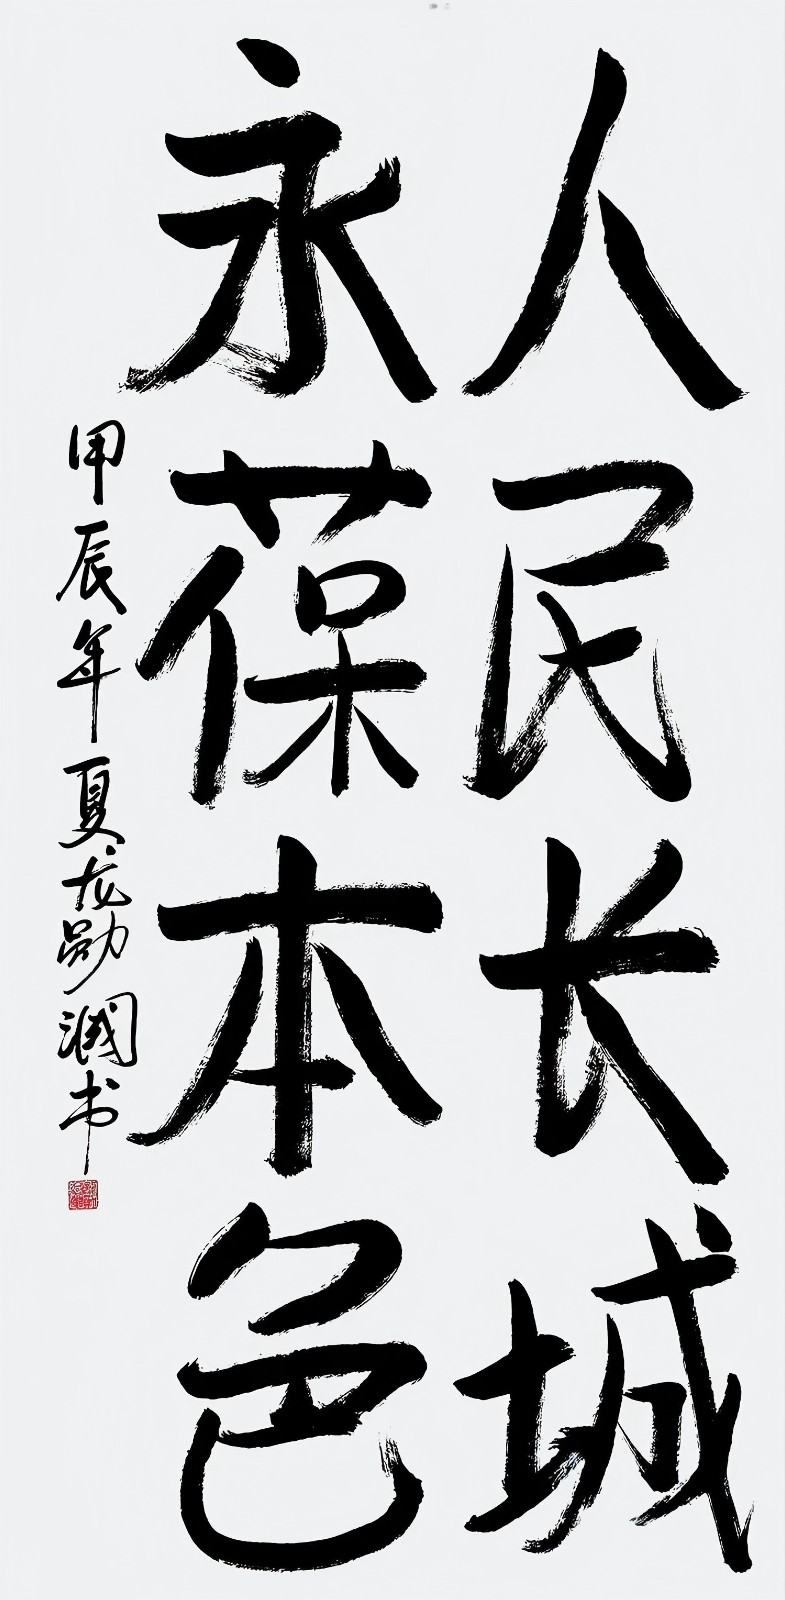 人民长城
永葆本色
甲辰年夏龙勋润书